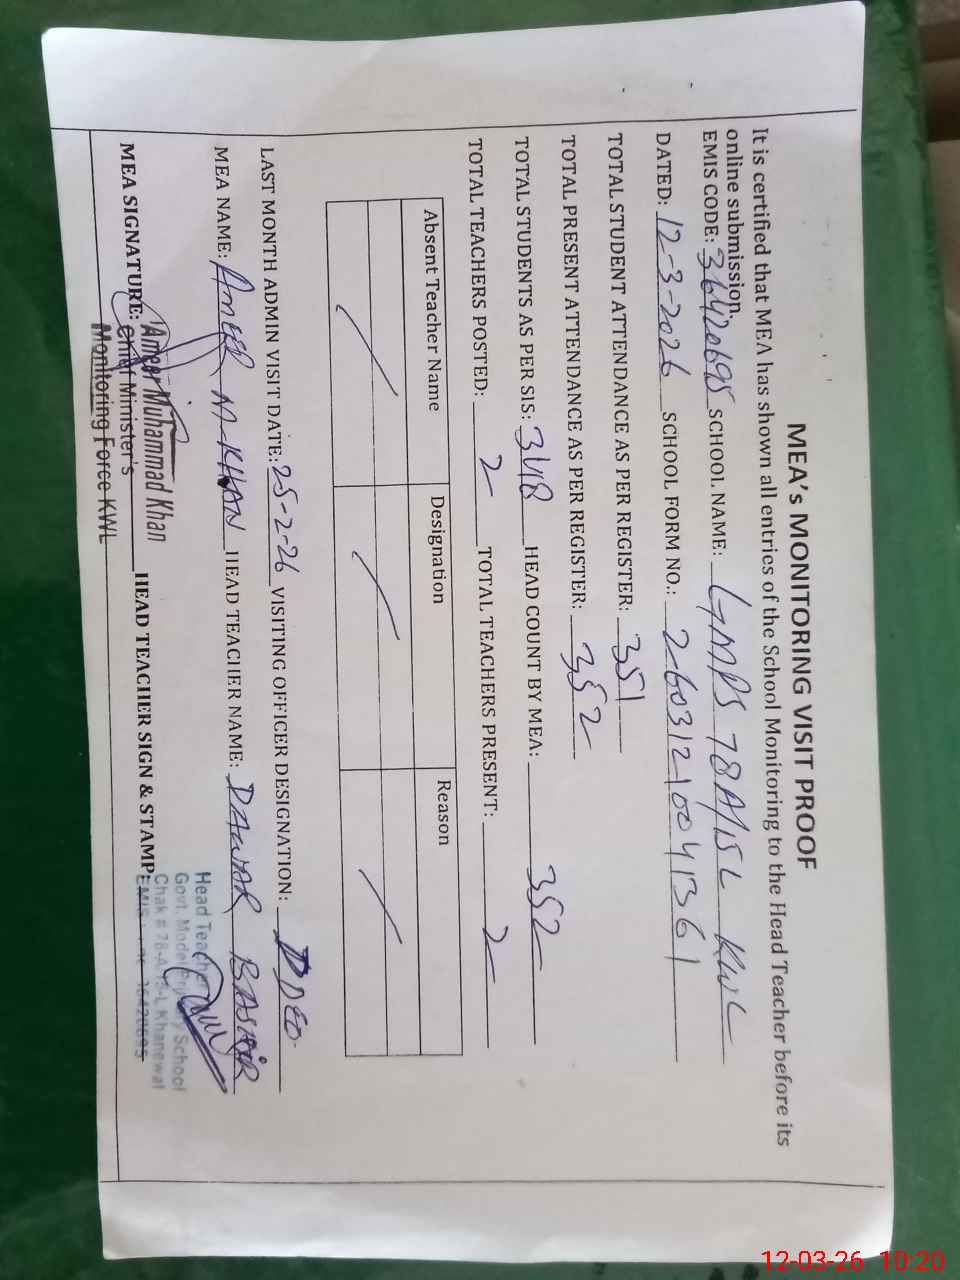 MEA's MONITORING VISIT PROOF
It is certified that MEA has shown all entries of the School Monitoring to the Head Teacher before its
online submission.
EMIS CODE: 36420695 SCHOOL NAME: GMPS 78A/15L KWL
DATED: 12-3-2026 SCHOOL FORM NO.: 26031210041361
TOTAL STUDENT ATTENDANCE AS PER REGISTER: 351
TOTAL PRESENT ATTENDANCE AS PER REGISTER: 352
TOTAL STUDENTS AS PER SIS: HEAD COUNT BY MEA: 352
TOTAL TEACHERS POSTED: 2 TOTAL TEACHERS PRESENT: 2
Absent Teacher Name Designation Reason
LAST MONTH ADMIN VISIT DATE: 25-2-26 VISITING OFFICER DESIGNATION: DDEO
MEA NAME: AMEER M-KHAN HEAD TEACHER NAME: DAWAR BASHIR
MEA SIGNATURE: HEAD TEACHER SIGN & STAMP:
Ameer Muhammad Khan
Chief Minister's
Monitoring Force KWL
Head Teacher
Govt. Model Primary School
Chak # 78-A/15-L Khanewal
EMIS 36420695
12-03-26 10:20